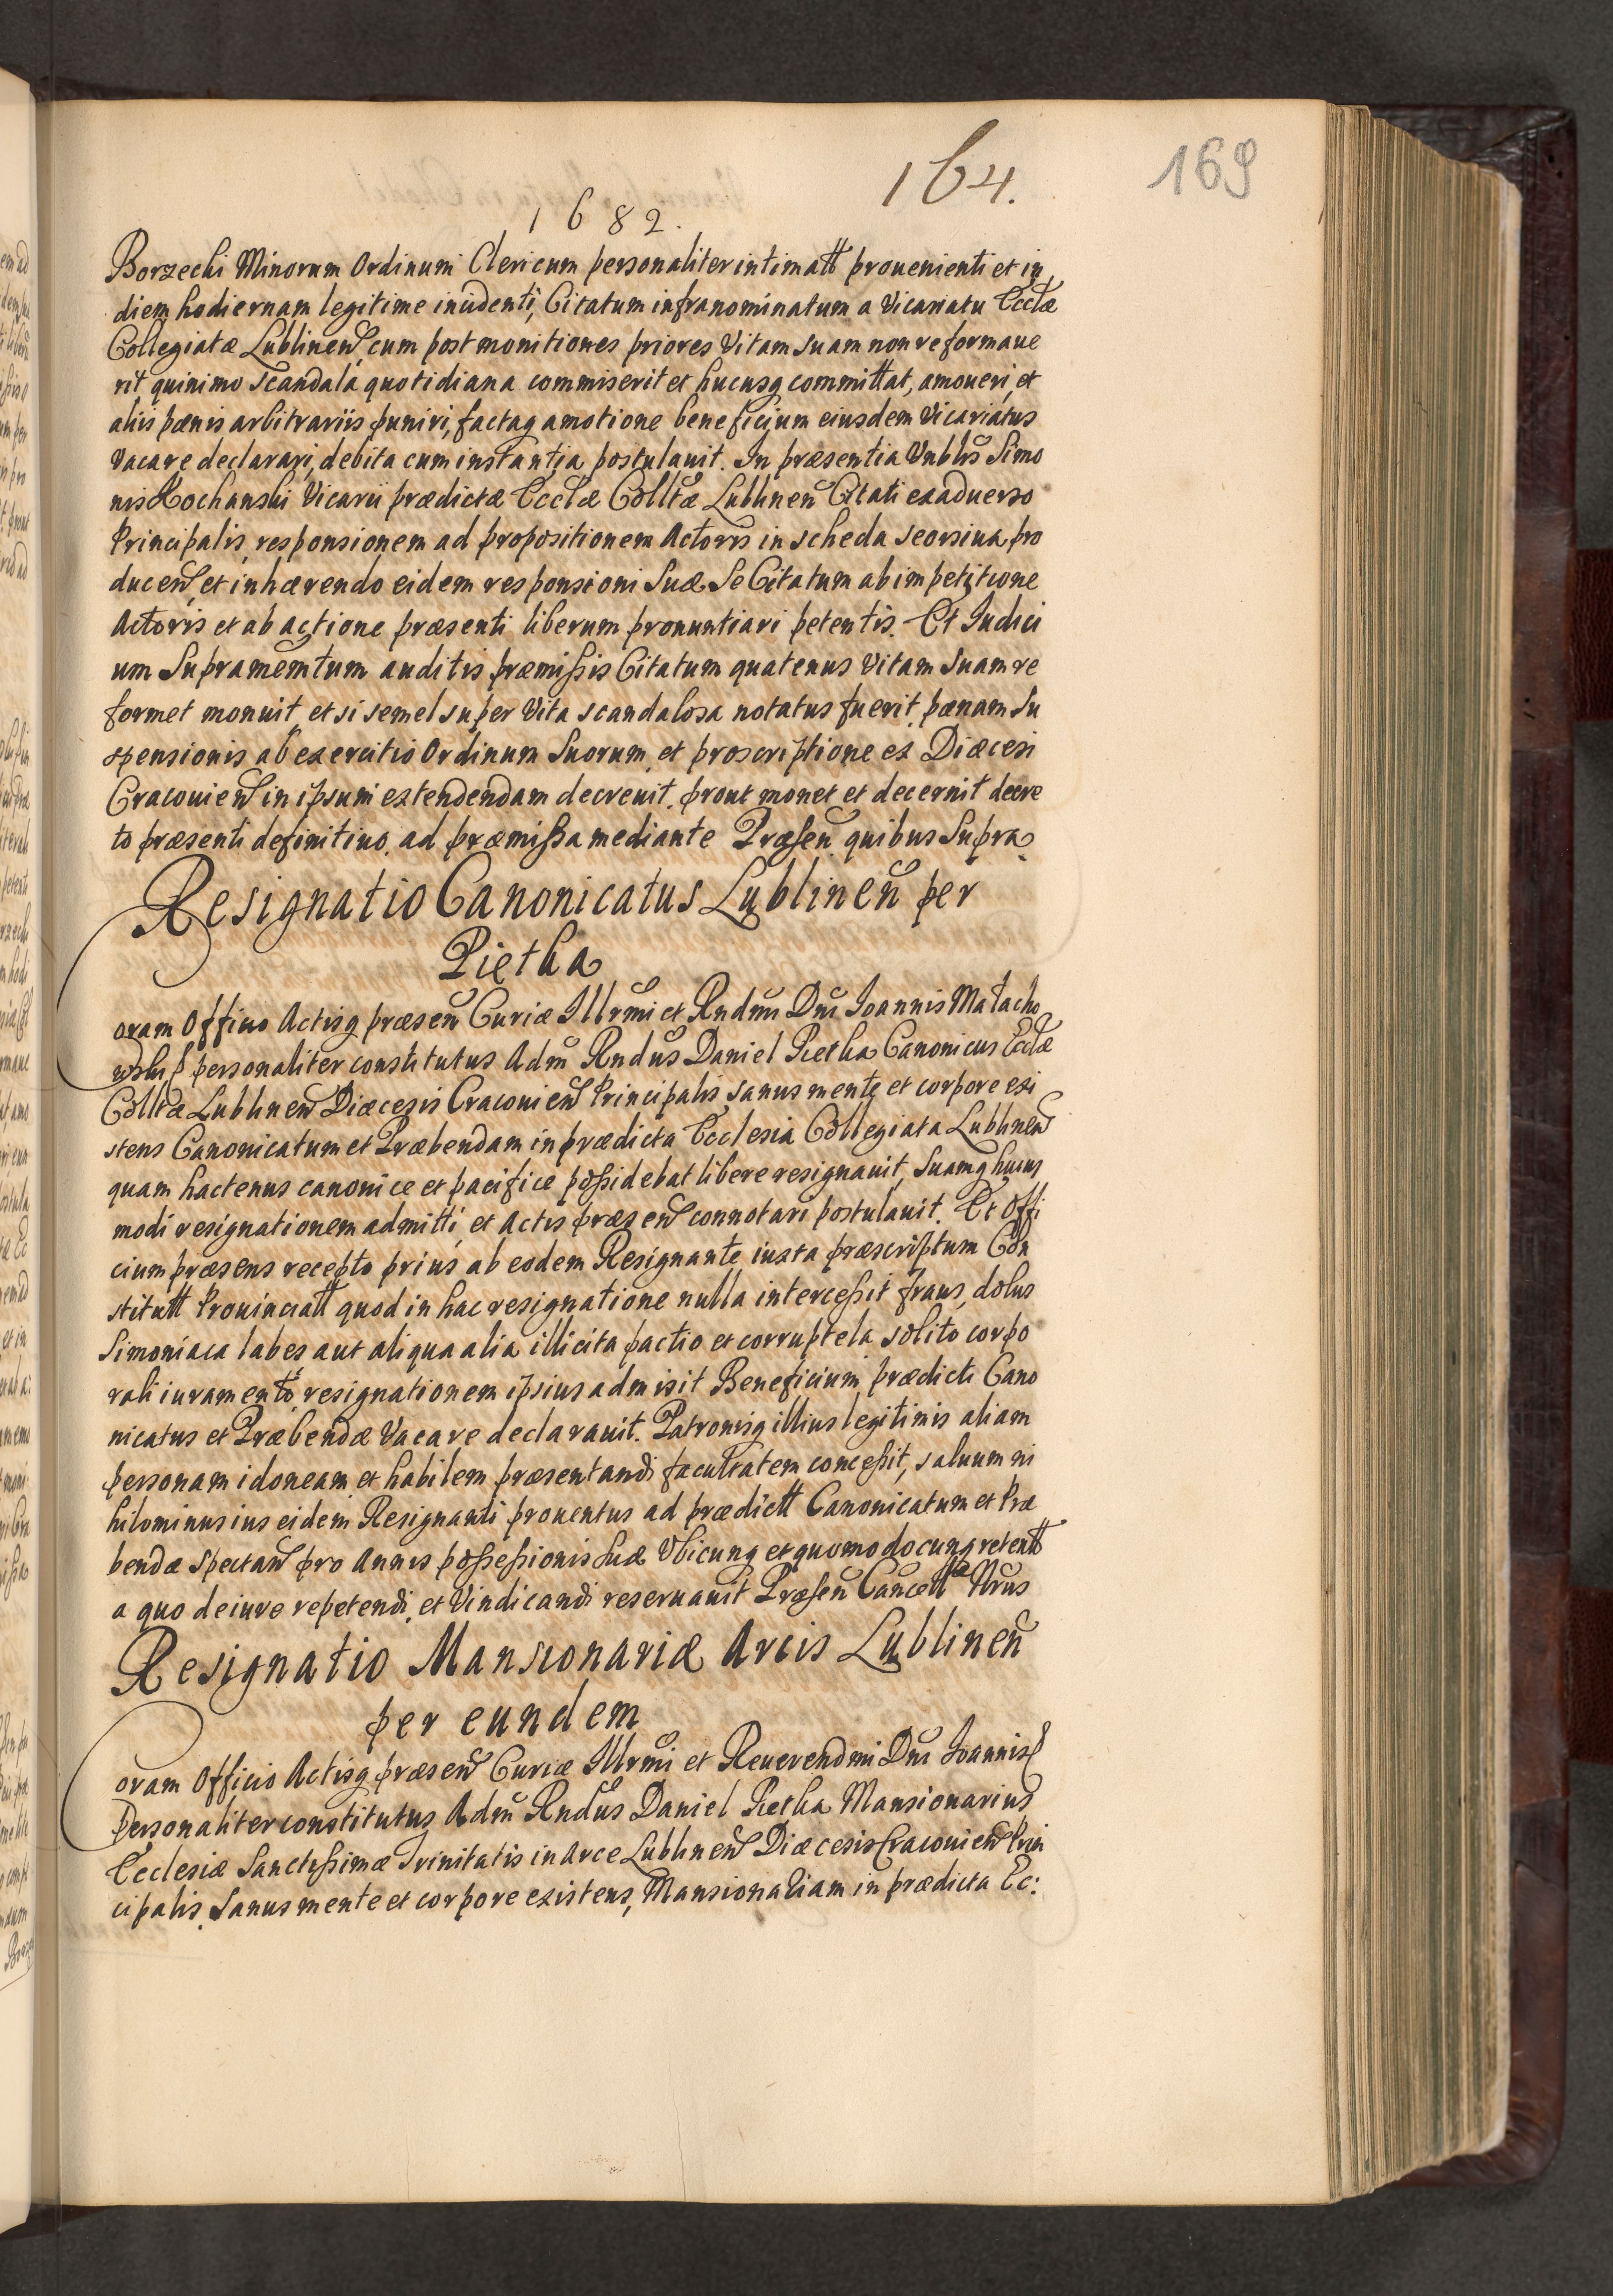 164.
169
1682.
Borzecki Minorum Ordinum Clericum personaliter intimatt prouenienti et in
diem hodiernam legitime incidenti, Citatum infranominatum a Vicariatu Ecclæ
Collegiatæ Lublinen, cum post monitiones priores Vitam suam non reformaue
rit quinimo scandala quotidiana commiserit et hucusq committat, amoueri, et
aliis pœnis arbitrariis puniri, factaq amotione beneficium eiusdem Vicariatus
Vacare declarari, debita cum instantia postulauit. In præsentia Vnblis Simo
nis Kochanski Vicarii prædictæ Ecclæ Colltæ Lublinen Citati ex aduerso
Principalis, responsionem ad propositionem Actoris in scheda seorsiua pro
ducen, et inhærendo eidem responsioni Suæ Se Citatum ab impetitione
Actoris et ab actione præsenti liberum pronuntiari petentis. Et Iudici
um Supramemtum auditis præmissis Citatum quatenus Vitam Suam re
formet monuit, et si semel super Vita scandalosa notatus fuerit, pœnam Su
spensionis ab exercitio Ordinum Suorum, et proscriptione ex Diæcesi
Cracouien in ipsum extendendam decreuit, prout monet et decernit decre
to præsenti definitiuo, ad præmissa mediante Præsen quibus Supra
Resignatio Canonicatus Lublinen per
Piętka
oram Officio Actisq præsen Curiæ Illrmi et Rndmi Dni Ioannis Małacho
wski personaliter constitutus Adm Rndus Daniel Pietka Canonicus Ecclæ
Colltæ Lublinen Diæcesis Cracouien Principalis sanus mente et corpore exi
stens Canonicatum et Præbendam in prædicta Ecclesia Collegiata Lublinen
quam hactenus canonice et pacifice possidebat libere resignauit, Suamq huius
modi resignationem admitti, et Actis præsen connotari postulauit. Et Offi
cium præsens recepto prius ab eodem Resignante iuxta præscriptum Con
stitutt Prouinciatt quod in hac resignatione nulla intercessit fraus, dolus
Simoniaca labes aut aliqua alia illicita pactio et corruptela solito corpo
rali iuramento, resignationem ipsius admisit Beneficium prædicti Cano
nicatus et Præbendæ Vacare declarauit. Patronisq illius legitimis aliam
personam idoneam et habilem præsentandi facultatem concessit, saluum ni
hilominus ius eidem Resignanti prouentus ad prædictt Canonicatum et Præ
bendæ Spectan pro Annis possessionis Suæ Vbicunq et quomodocunq retentt
a quo de iure repetendi, et Vindicandi reseruauit Præsen Cancellæ Nrus
Resignatio Mansionariæ Arcis Lublinen
per eundem
oram Officio Actisq præsen Curiæ Illrmi et Reuerendmi Dni Ioannis
Personaliter constitutus Adm Rndus Daniel Pietka Mansionarius
Ecclesiæ Sanctissimæ Trinitatis in Arce Lublinen Diæcesis Cracouien Prin
cipalis Sanus mente et corpore existens, Mansionariam in prædicta Ec: